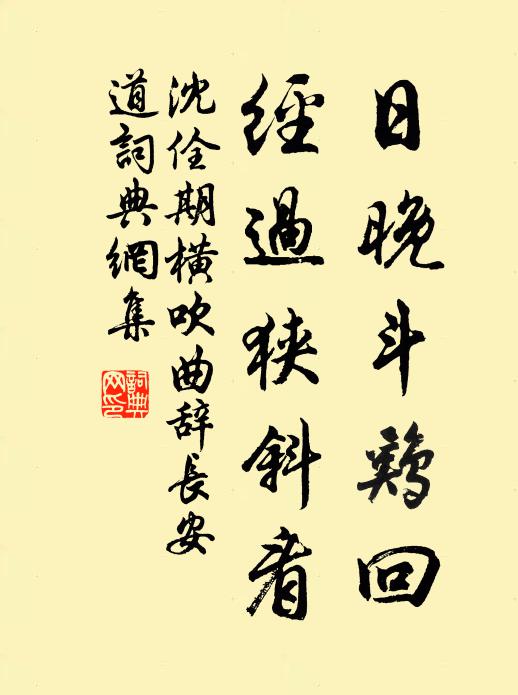 日晚斗鷄回
經過狹斜看
沈佺期橫吹曲辞長安
道詞典網集
詞典网印